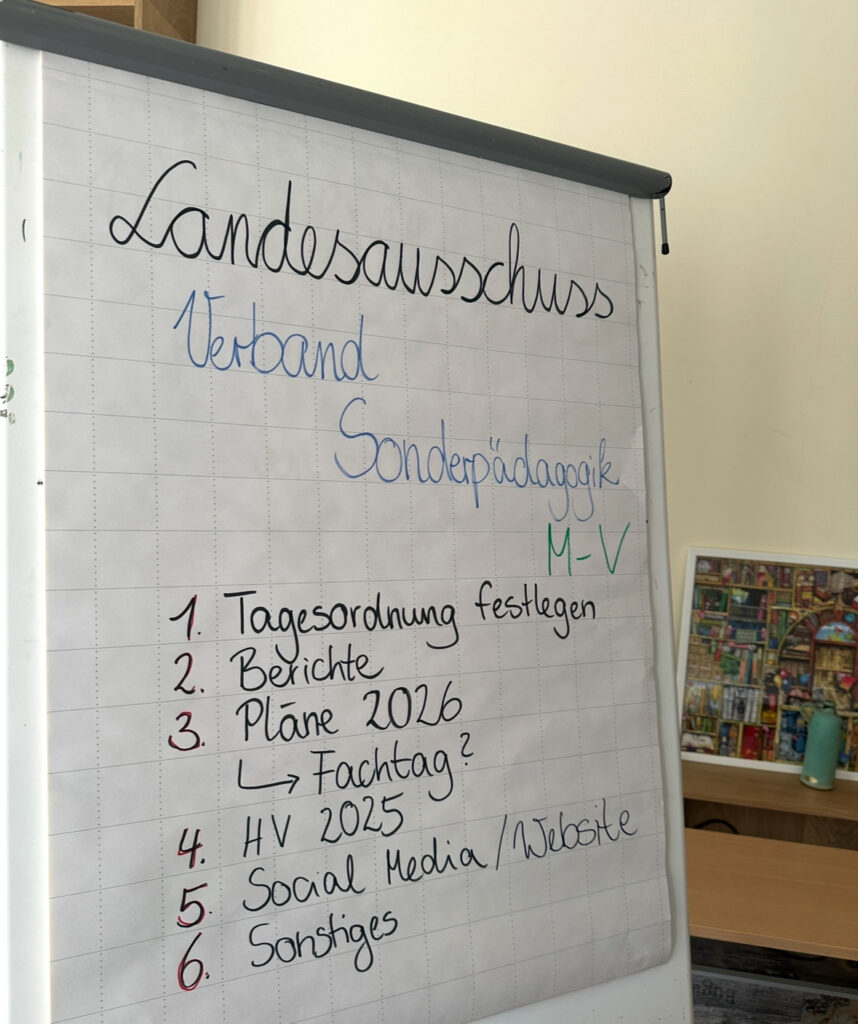 Landesausschuss
Verband
Sonderpädagogik
M-V
1. Tagesordnung festlegen
2. Berichte
3. Pläne 2026
↳ Fachtag?
4. HV 2025
5. Social Media / Website
6. Sonstiges